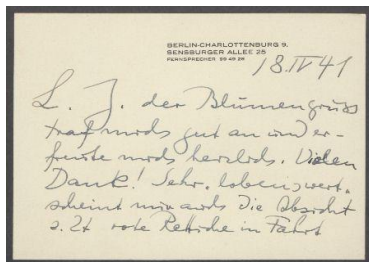 BERLIN-CHARLOTTENBURG 9,
SENSBURGER ALLEE 26
FERNSPRECHER 99 48 28
18.IV 41
L. J. der Blumengruss
traf mich gut an und er-
freute mich herzlich. Vielen
Dank! Sehr lobenswert
scheint mir auch die Absicht
z. Zt rote Rettiche in Fahrt